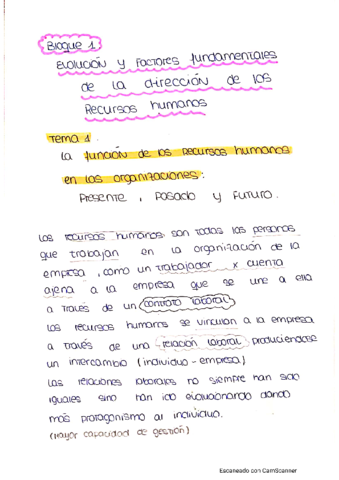 Bloque 1:
Evolución y Factores fundamentales
de la dirección de los
Recursos humanos
Tema 1.
La función de los Recursos humanos
en las organizaciones:
Presente, Pasado y Futuro.
Los recursos humanos son todas las personas
que trabajan en la organización de la
empresa, como un trabajador x cuenta
ajena a la empresa que se une a ella
a través de un contrato laboral
los recursos humanos se vinculan a la empresa
a través de una relación laboral produciendose
un intercambio (individuo - empresa)
Las relaciones laborales no siempre han sido
iguales sino han ido evolucionando dando
más protagonismo al individuo.
(Mayor capacidad de gestión)
Escaneado con CamScanner